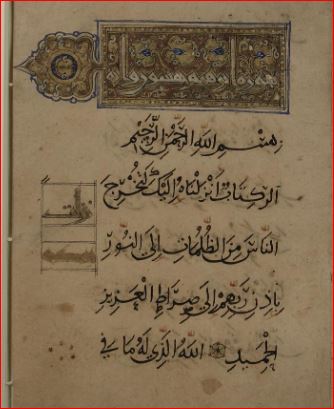 بسم الله الرحمن الرحيم
الر كتاب انزلناه اليك لتخرج
الناس من الظلمات الى النور
باذن ربهم الى صراط العزيز
الحميد الله الذي له ما في